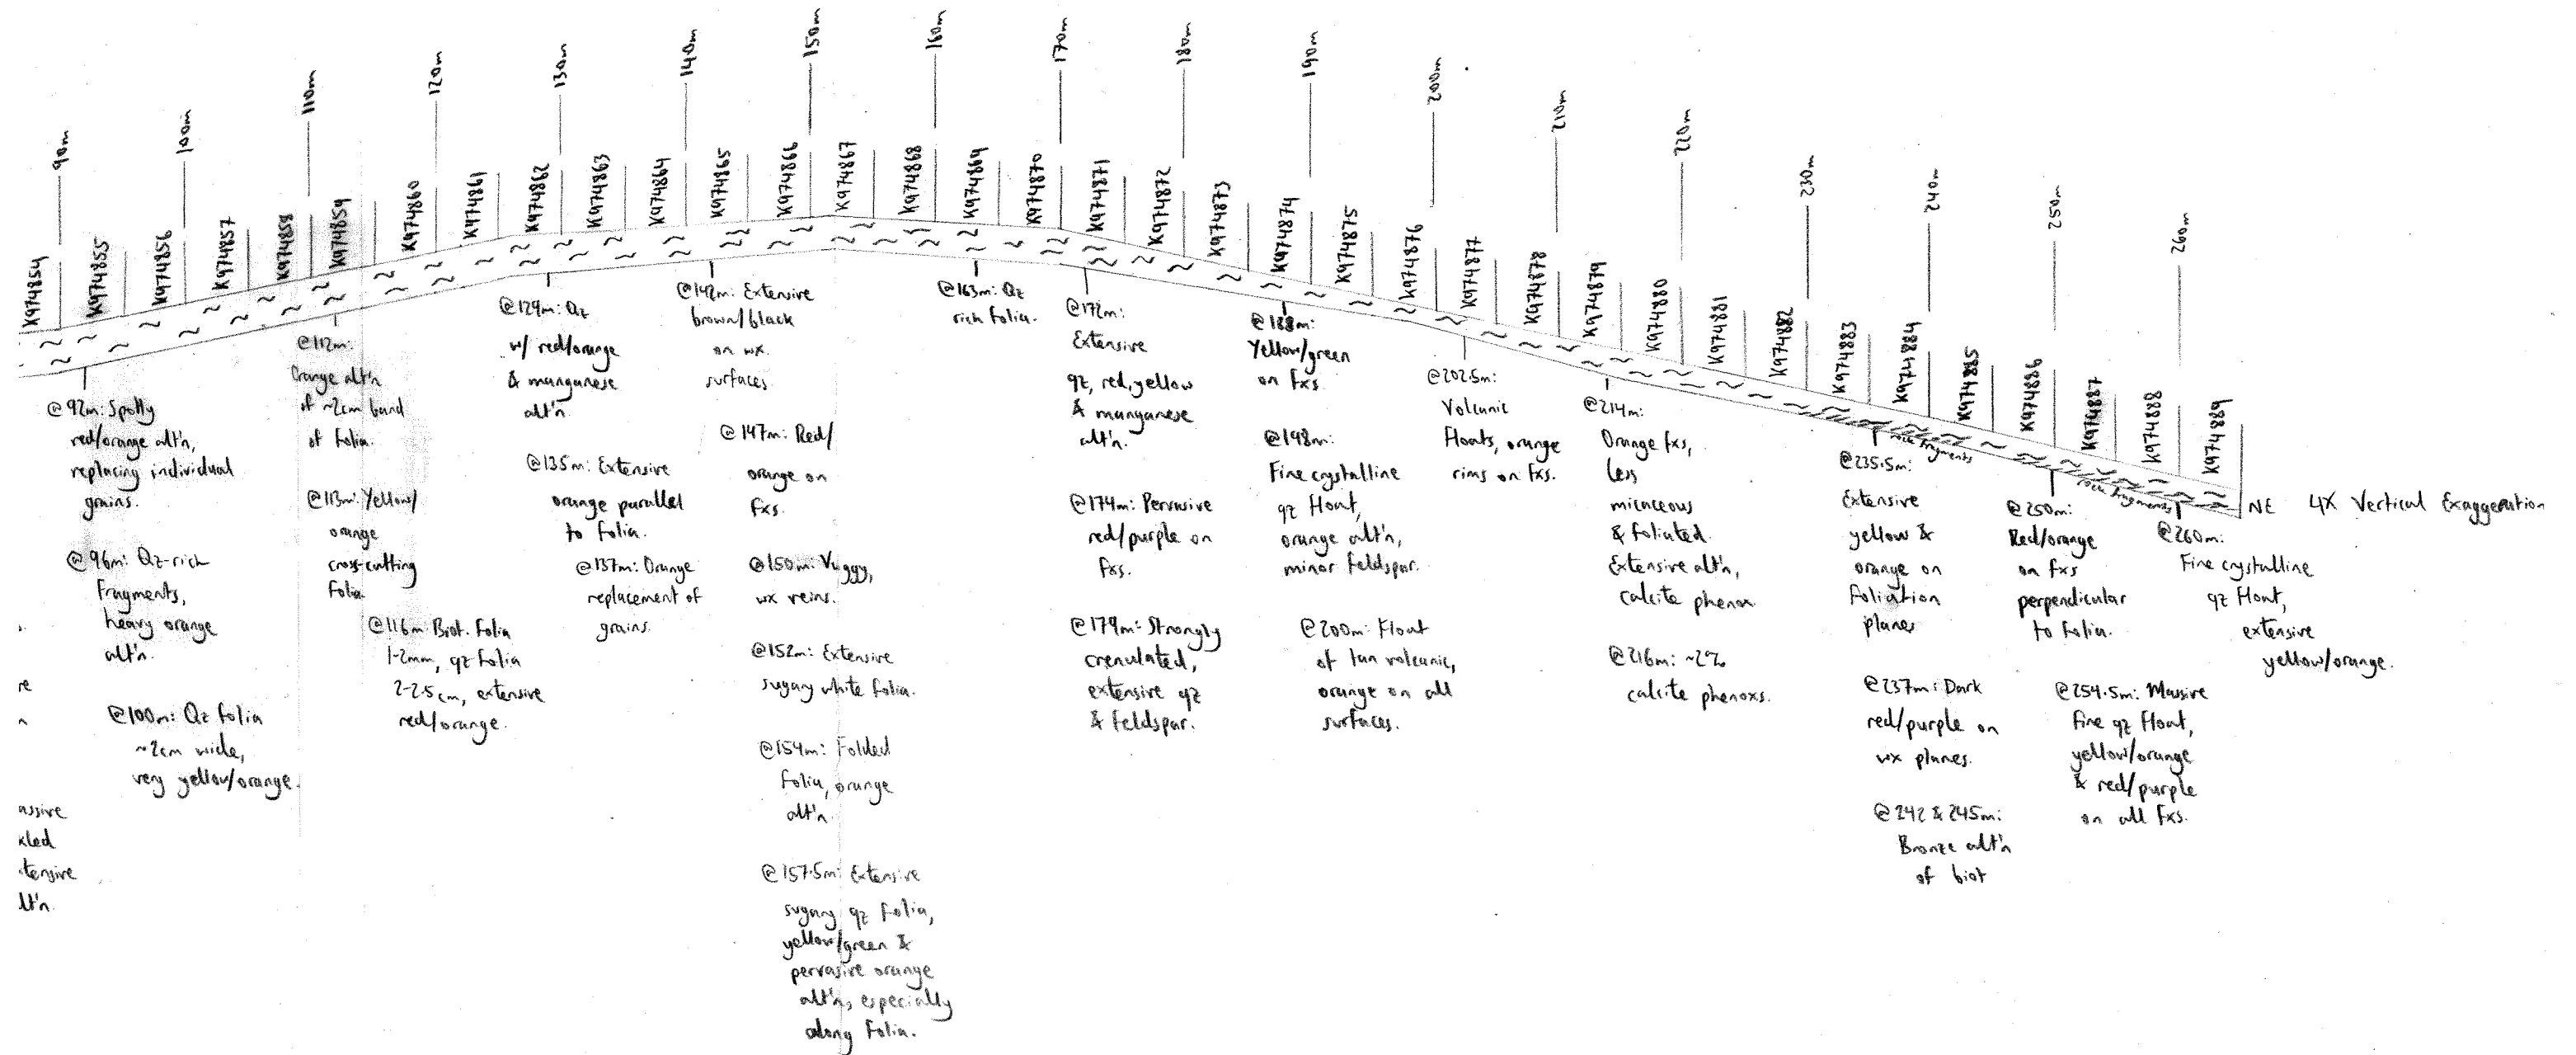 90m
100m
110m
120m
130m
140m
150m
160m
170m
180m
190m
200m
210m
220m
230m
240m
250m
260m
K974854
K974855
K974856
K974857
K974858
K974859
K974860
K974861
K974862
K974863
K974864
K974865
K974866
K974867
K974868
K974869
K974870
K974871
K974872
K974873
K974874
K974875
K974876
K974877
K974878
K974879
K974880
K974881
K974882
K974883
K974884
K974885
K974886
K974887
K974888
K974889
rock fragments
rock fragments
NE 4X Vertical Exaggeration
re
n
assive
kled
tensive
lt'n.
@92m: Spotty
red/orange alt'n,
replacing individual
grains.
@96m: Qz-rich
fragments,
heavy orange
alt'n.
@100m: Qz folia
~2cm wide,
very yellow/orange.
@112m:
Orange alt'n
of ~2cm band
of folia.
@113m: Yellow/
orange
cross-cutting
folia.
@116m: Biot. folia
1-2mm, qz folia
2-2.5cm, extensive
red/orange.
@129m: Qz
w/ red/orange
& manganese
alt'n.
@135m: Extensive
orange parallel
to folia.
@137m: Orange
replacement of
grains.
@142m: Extensive
brown/black
on wx.
surfaces.
@147m: Red/
orange on
fxs.
@150m: Vuggy,
wx veins.
@152m: Extensive
sugary white folia.
@154m: Folded
folia, orange
alt'n.
@157.5m: Extensive
sugary qz folia,
yellow/green &
pervasive orange
alt'n, especially
along folia.
@163m: Qz
rich folia.
@172m:
Extensive
qz, red, yellow
& manganese
alt'n.
@174m: Pervasive
red/purple on
fxs.
@179m: Strongly
crenulated,
extensive qz
& feldspar.
@188m:
Yellow/green
on fxs.
@198m:
Fine crystalline
qz float,
orange alt'n,
minor feldspar.
@200m: Float
of tan volcanic,
orange on all
surfaces.
@202.5m:
Volcanic
floats, orange
rims on fxs.
@214m:
Orange fxs,
less
micaceous
& foliated.
Extensive alt'n,
calcite phenox
@216m: ~2%
calcite phenoxs.
@235.5m:
Extensive
yellow &
orange on
foliation
planes
@237m: Dark
red/purple on
wx planes.
@242 & 245m:
Bronze alt'n
of biot
@250m:
Red/orange
on fxs
perpendicular
to folia.
@254.5m: Massive
fine qz float,
yellow/orange
& red/purple
on all fxs.
@260m:
Fine crystalline
qz float,
extensive
yellow/orange.